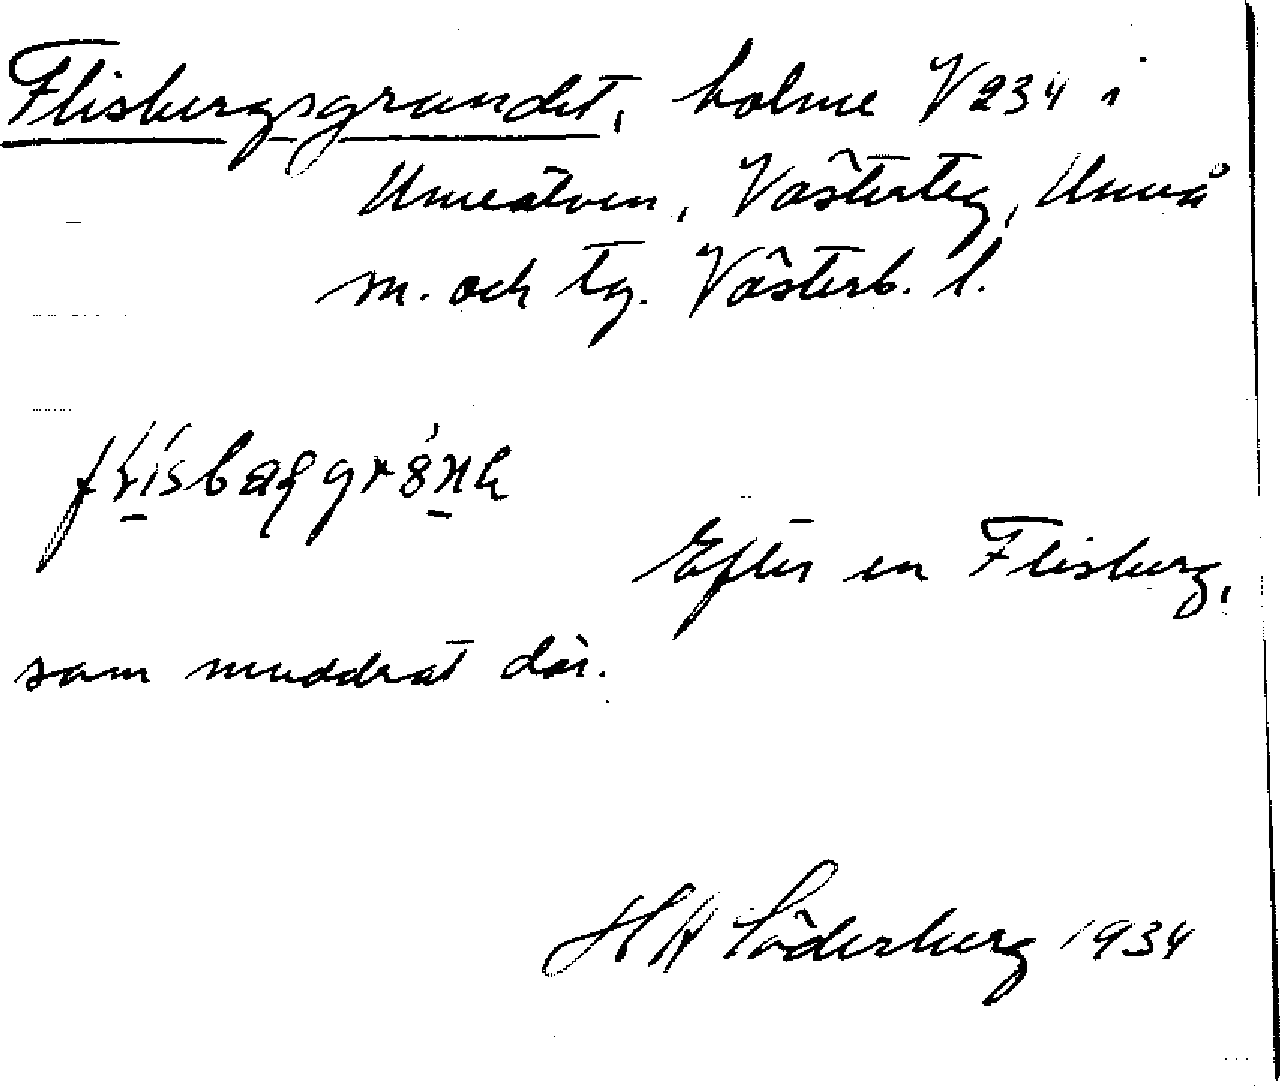 Flisbergsgrundet, holme V234 i
Umeälven, Västerteg, Umeå
m. och tg. Västerb. l.
Efter en Flisberg,
som muddrat där.
HH Söderberg 1934